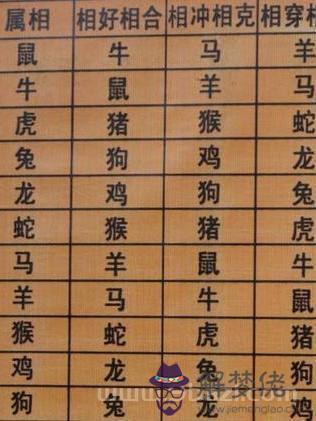 属相 相好相合 相冲相克 相穿相
鼠 牛 马 羊
牛 鼠 羊 马
虎 猪 猴 蛇
兔 狗 鸡 龙
龙 鸡 狗 兔
蛇 猴 猪 虎
马 羊 鼠 牛
羊 马 牛 鼠
猴 蛇 虎 猪
鸡 龙 兔 狗
狗 兔 龙 鸡
解梦佬
www.jiemenglao.com/